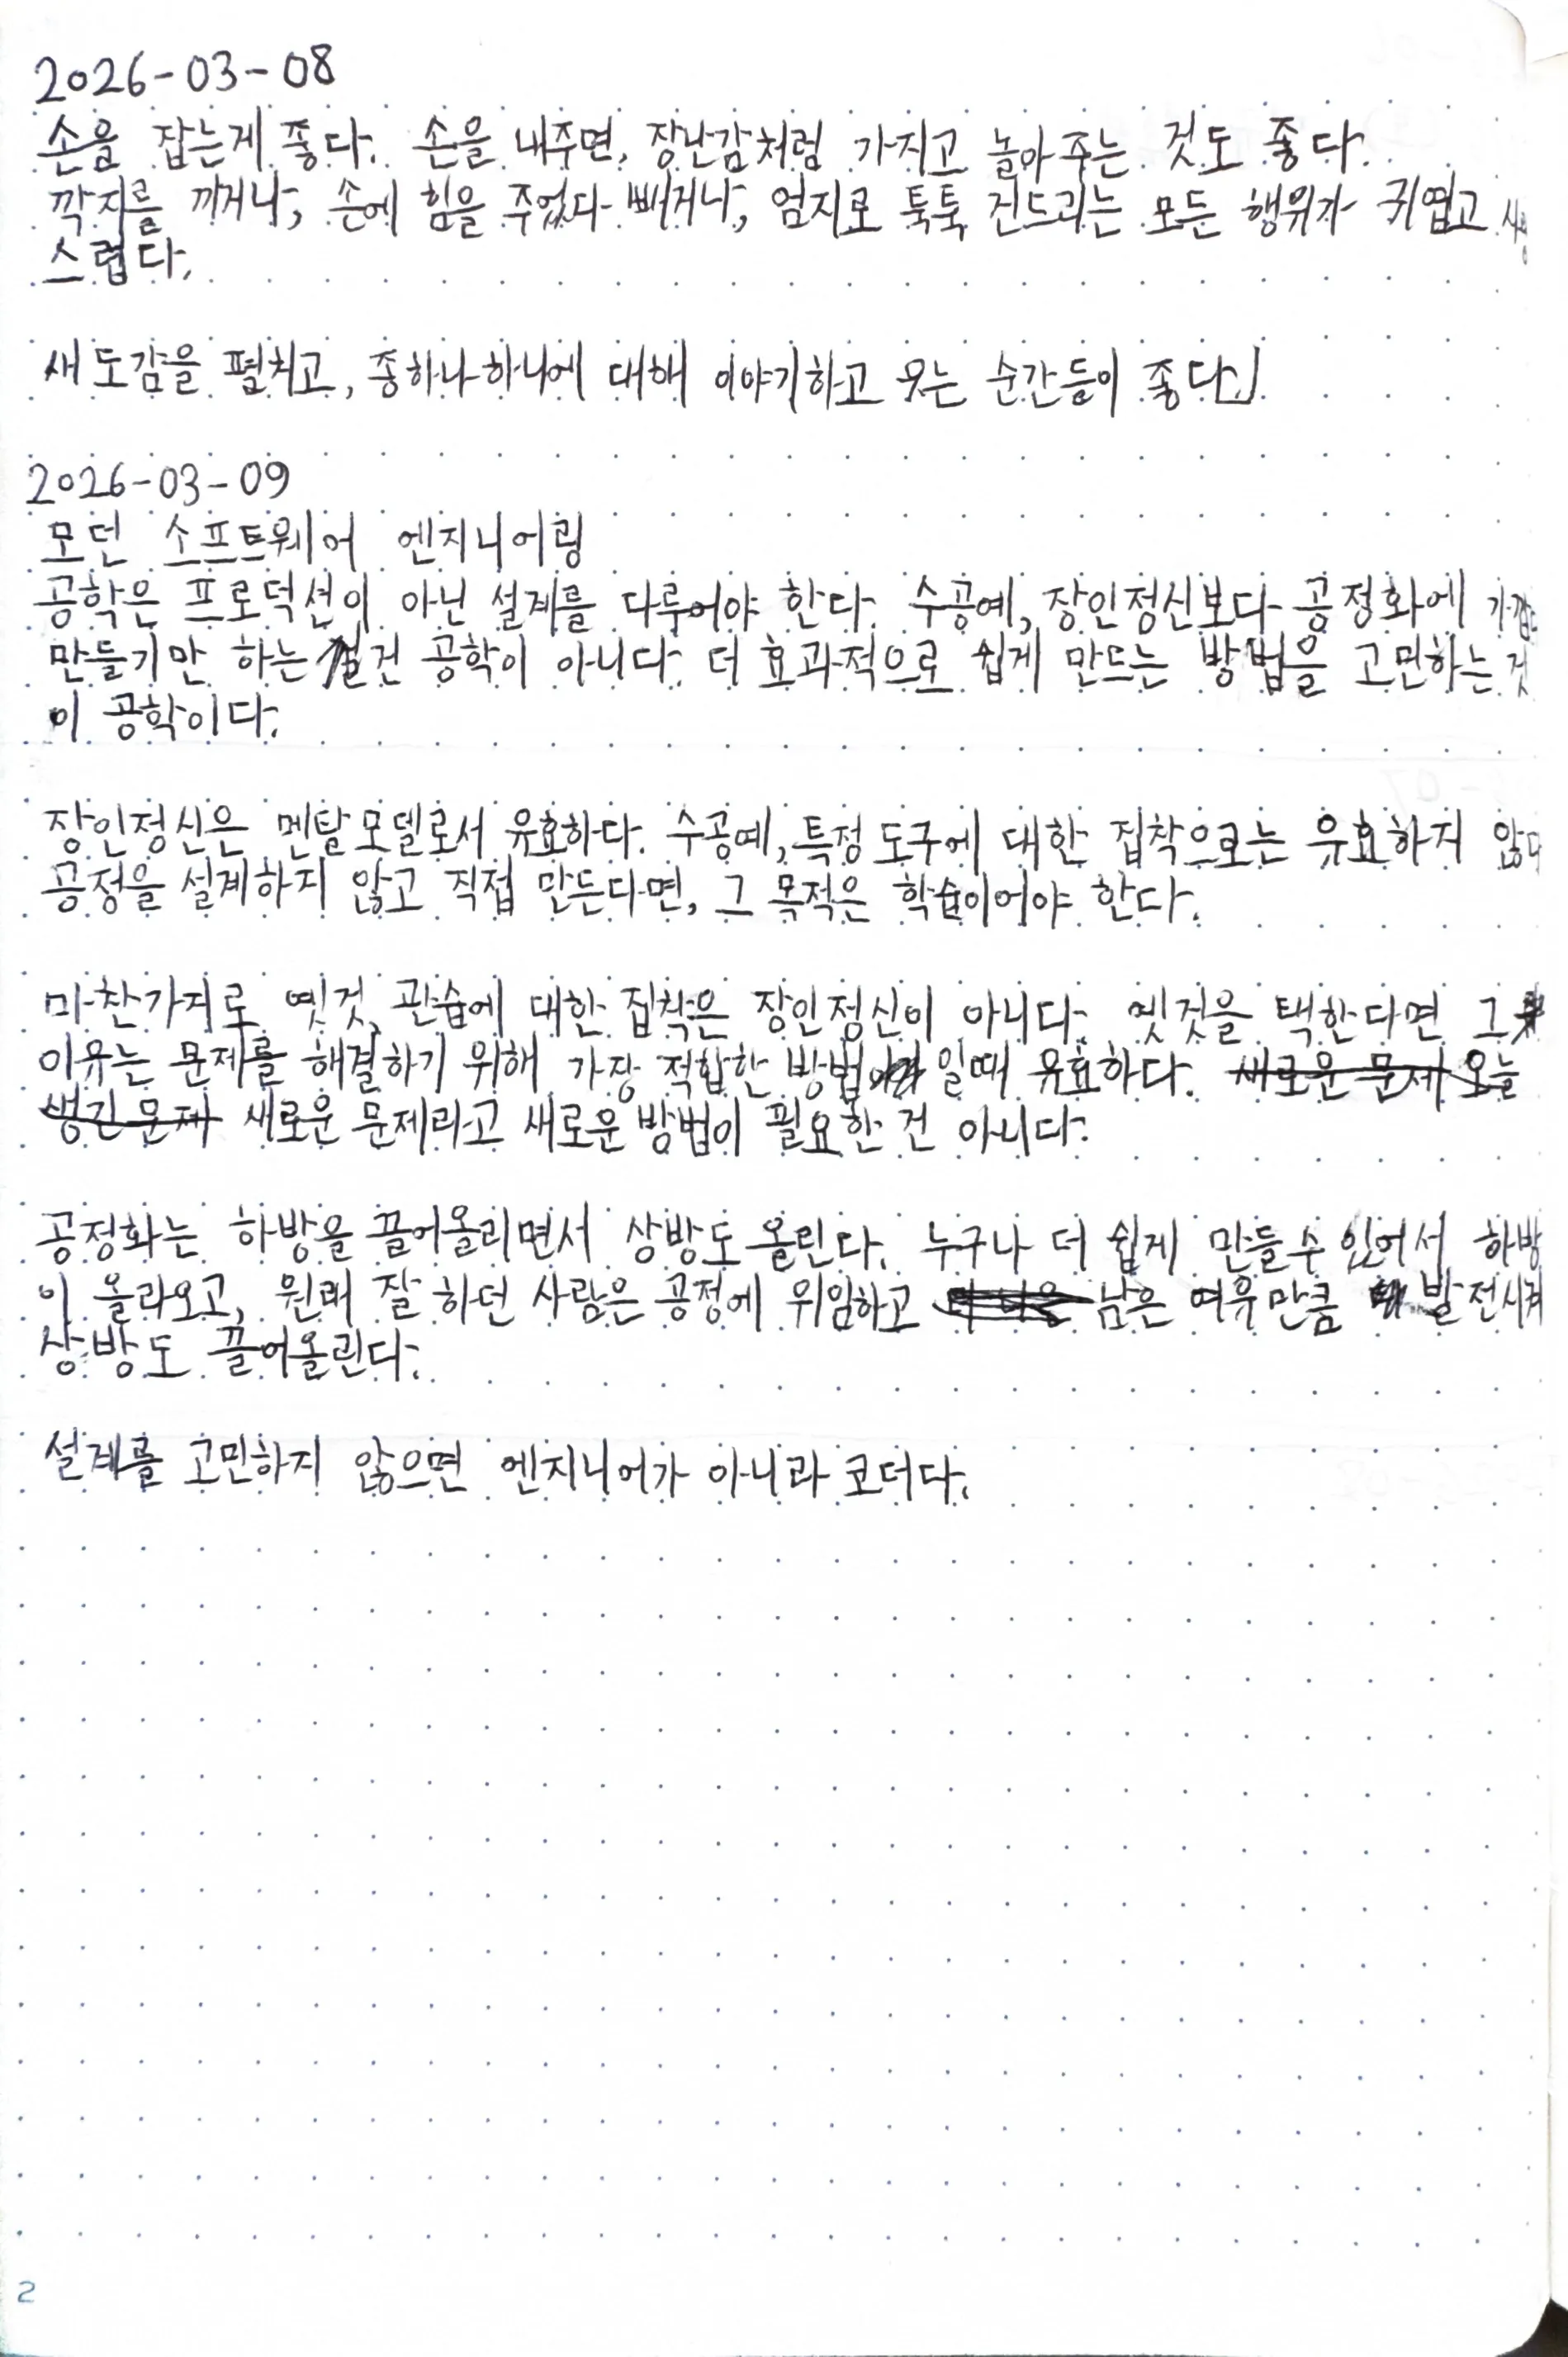 2026-03-08
손을 잡는게 좋다. 손을 내주면, 장난감처럼 가지고 놀아 주는 것도 좋다.
깍지를 끼거나, 손에 힘을 주었다 빼거나, 엄지로 툭툭 건드리는 모든 행위가 귀엽고
스럽다.
새 도감을 펼치고, 종하나하나에 대해 이야기하고 웃는 순간들이 좋다.
2026-03-09
모던 소프트웨어 엔지니어링
공학은 프로덕션이 아닌 설계를 다루어야 한다. 수공예, 장인정신보다 공정화에
만들기만 하는 건 공학이 아니다. 더 효과적으로 쉽게 만드는 방법을 고민하는 것
이 공학이다.
장인정신은 멘탈모델로서 유효하다. 수공예, 특정 도구에 대한 집착으로는 유효하지 않다
공정을 설계하지 않고 직접 만든다면, 그 목적은 학습이어야 한다.
마찬가지로 옛것, 관습에 대한 집착은 장인정신이 아니다. 옛것을 택한다면 그
이유는 문제를 해결하기 위해 가장 적합한 방법 일때 유효하다. 새로운 문제 오늘
생긴 문제 새로운 문제라고 새로운 방법이 필요한 건 아니다.
공정화는 하방을 끌어올리면서 상방도 올린다. 누구나 더 쉽게 만들수 있어서 하방
이 올라오고, 원래 잘 하던 사람은 공정에 위임하고 남은 여유만큼 발전시켜
상방도 끌어올린다.
설계를 고민하지 않으면 엔지니어가 아니라 코더다.
2